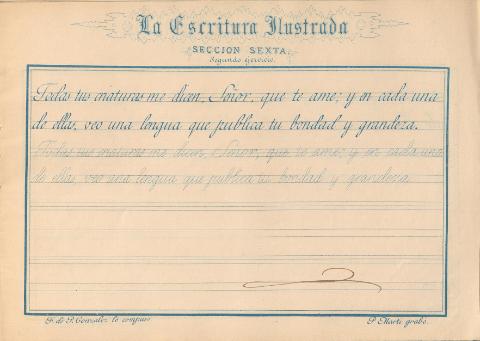 La Escritura Ilustrada
SECCION SEXTA.
Segundo Ejercicio.
Todas tus criaturas me dicen, Señor, que te ame; y en cada una
de ellas, veo una lengua que publica tu bondad y grandeza.
Todas tus criaturas me dicen, Señor, que te ame; y en cada una
de ellas, veo una lengua que publica tu bondad y grandeza.
F. de P. Gonzalez lo compuso
P. Marti grabó.